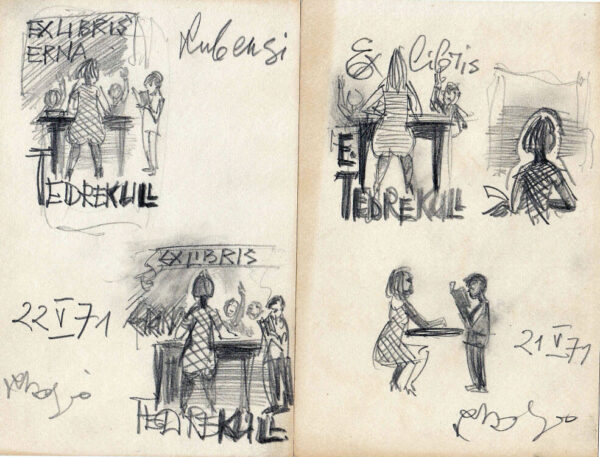 EX LIBRIS
ERNA
TEDREKULL
EX LIBRIS
ERNA
TEDREKULL
22 V 71
Ex libris
E.
TEDREKULL
21 V 71